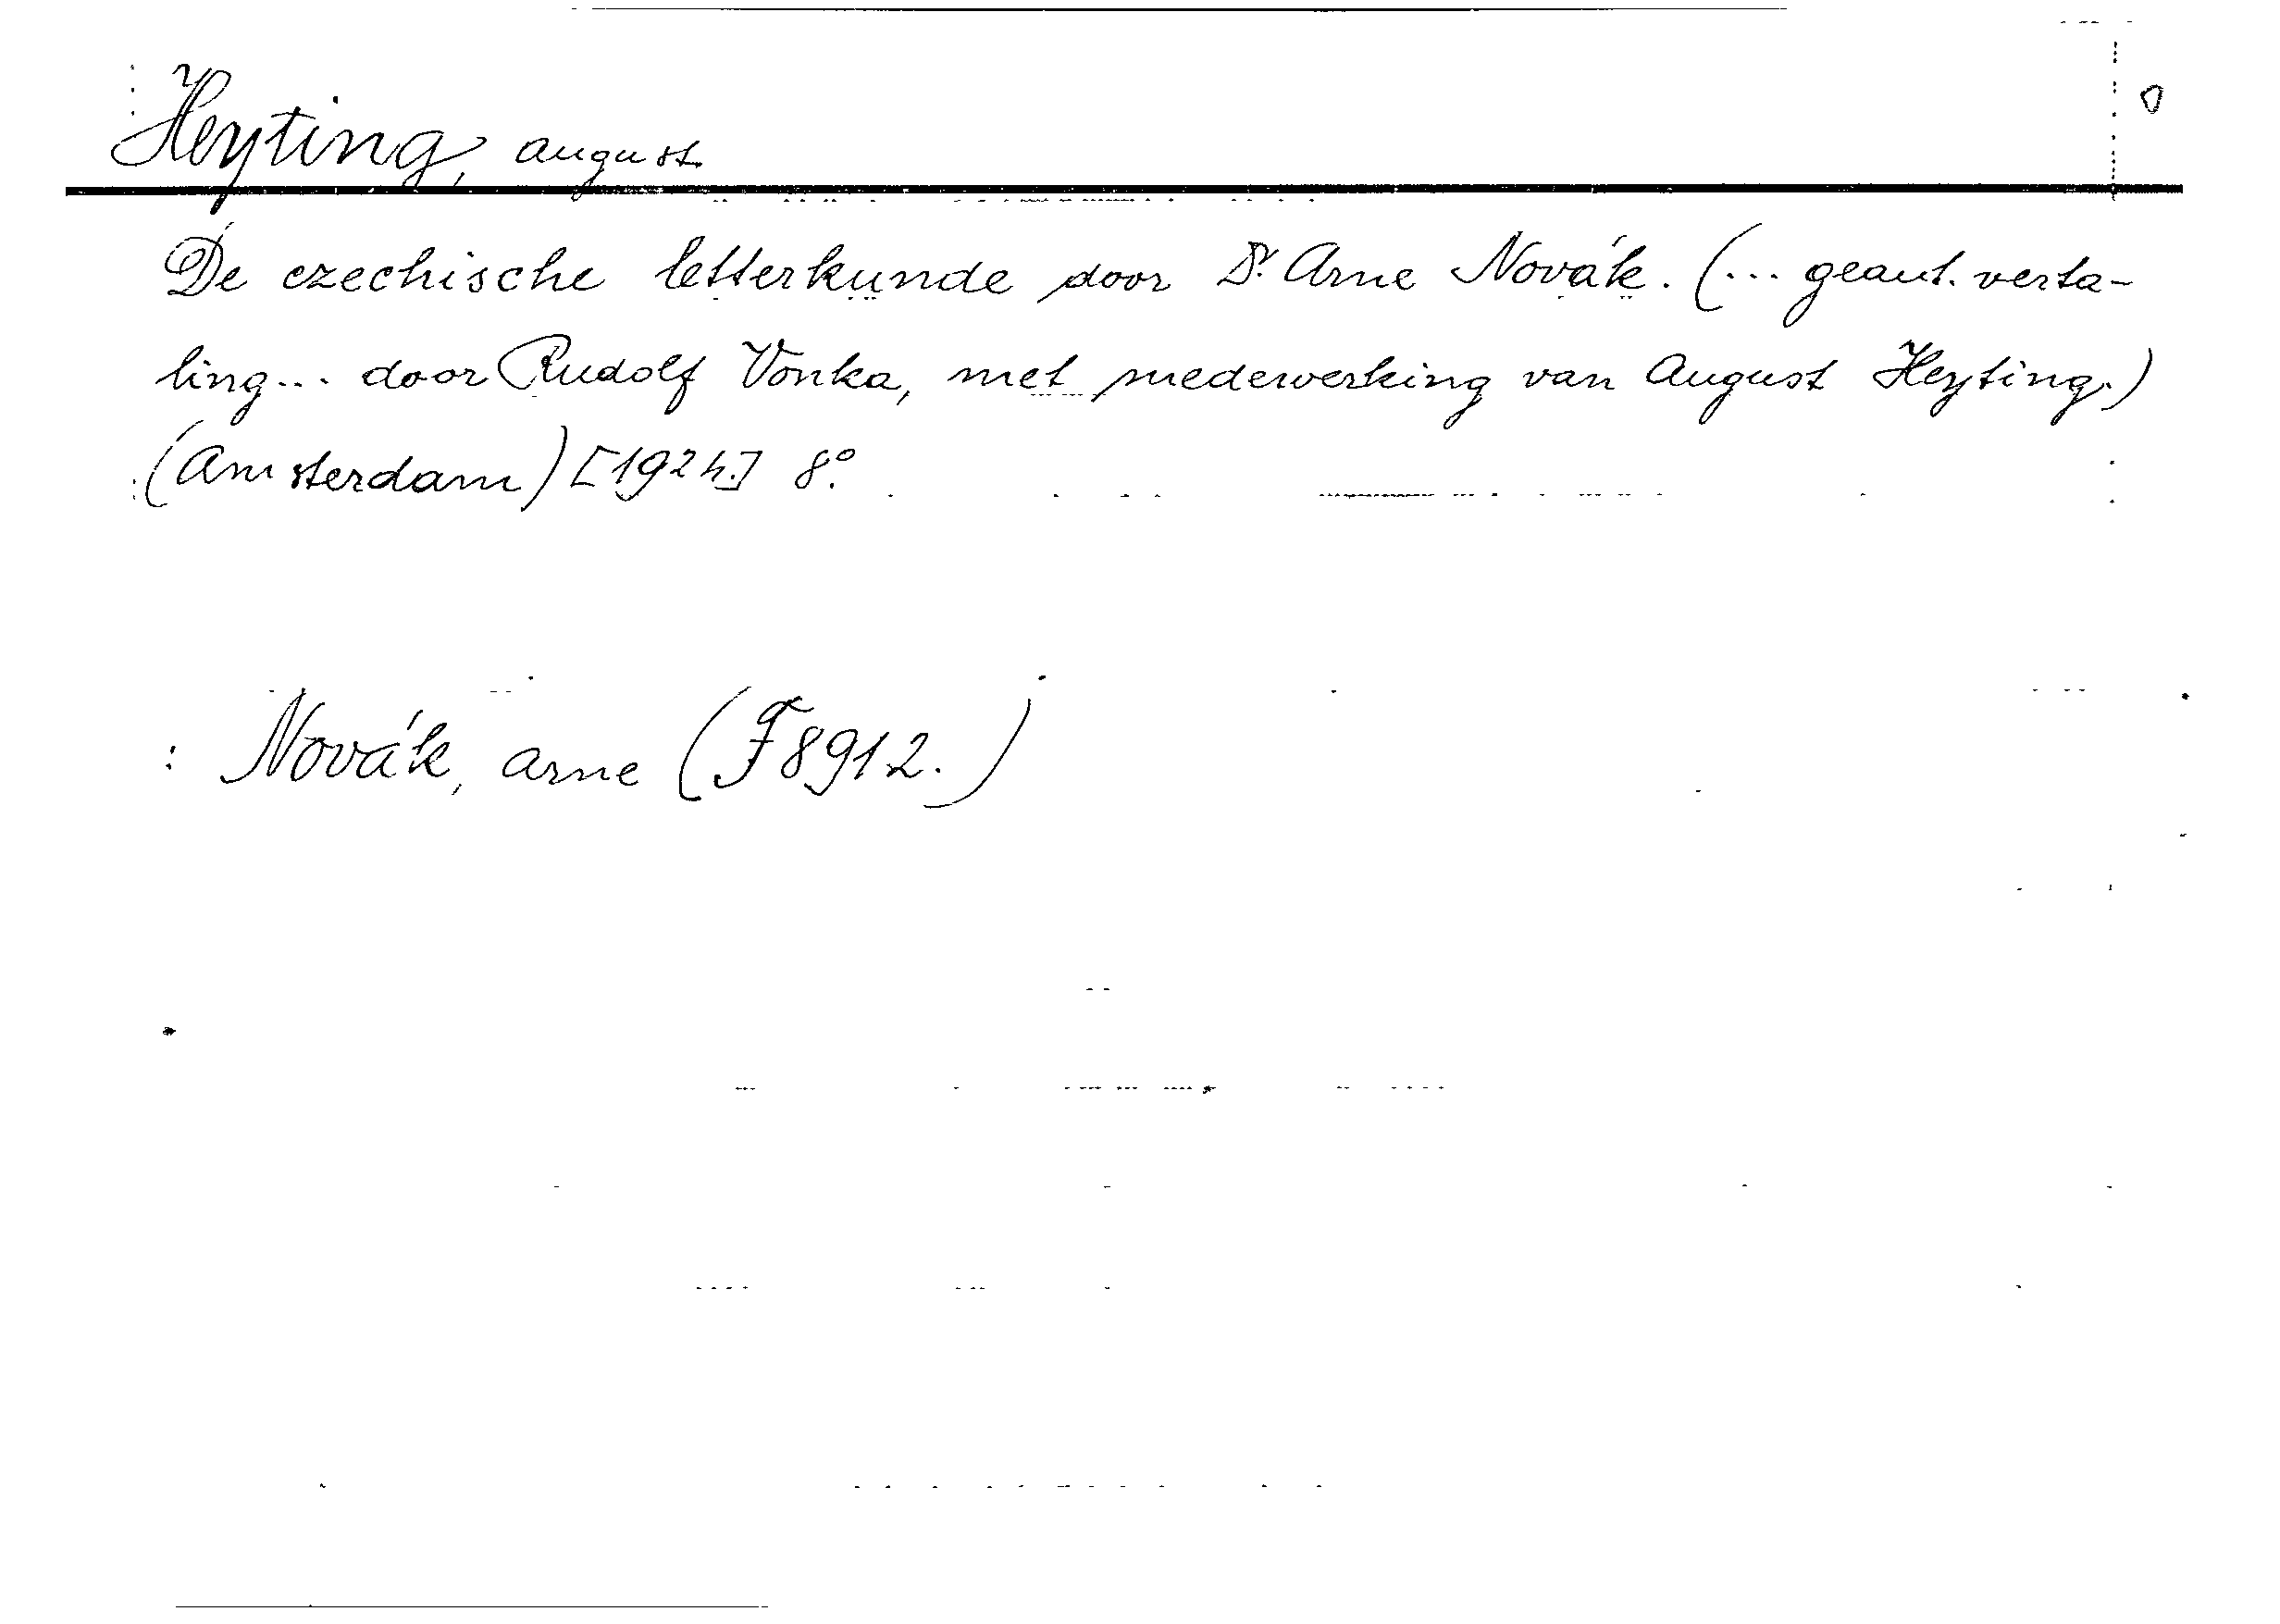 Heyting, August
De czechische letterkunde door Dr. Arne Novák. (... geaut. verta-
ling... door Rudolf Vonka, met medewerking van August Heyting.)
(Amsterdam) [1924.] 8°.
: Novák, Arne (F 8912.)